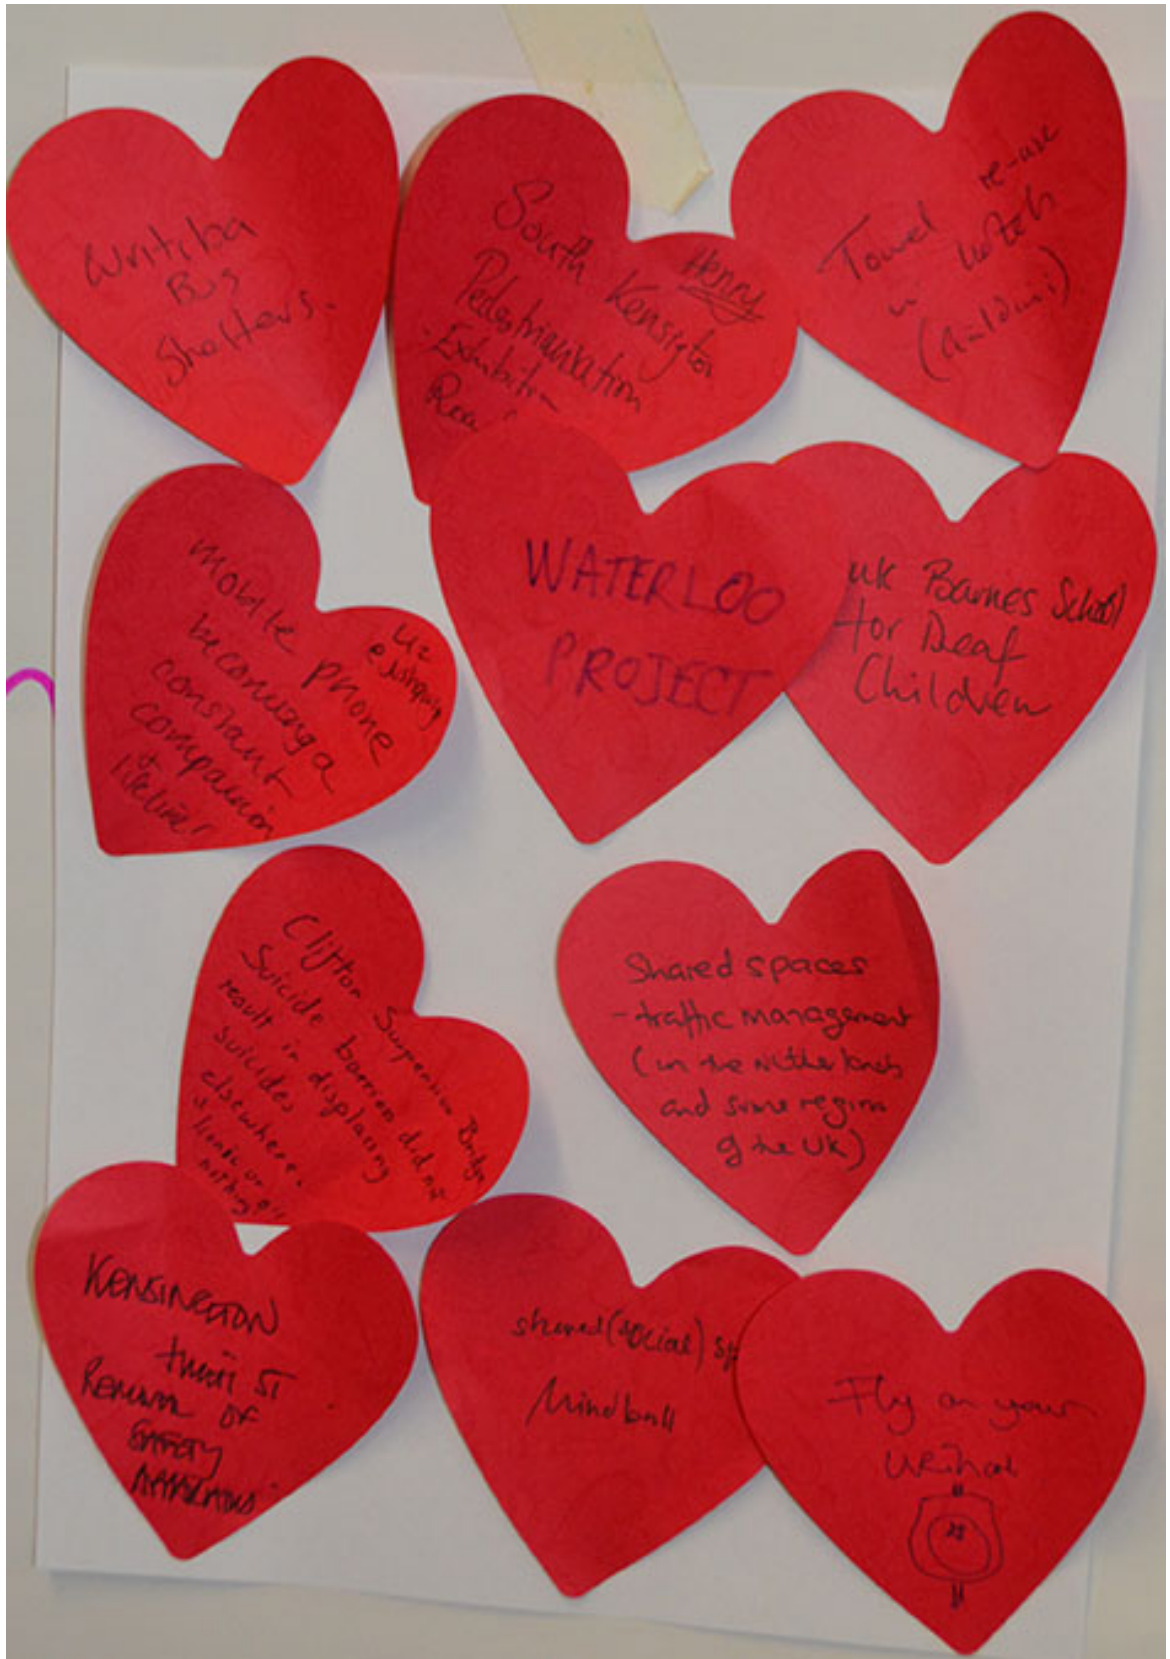 Curitiba
Bus
Shelters.
South Kensigton
Henry
Pedestrianisation
- Exhibition
Towel re-use
in hotels
mobile phone
becoming a
constant
companion
UK Barnes School
for Deaf
Children
WATERLOO
PROJECT
Clifton Suspension Bridge
Suicide barriers did not
result in displacing
suicides
elsewhere.
Shared spaces
- traffic management
(in the Netherlands
and some regions
of the UK)
KENSINGTON
HIGH ST
REMOVAL OF
SAFETY
shared (social) sp
Mindball
Fly on your
urinal